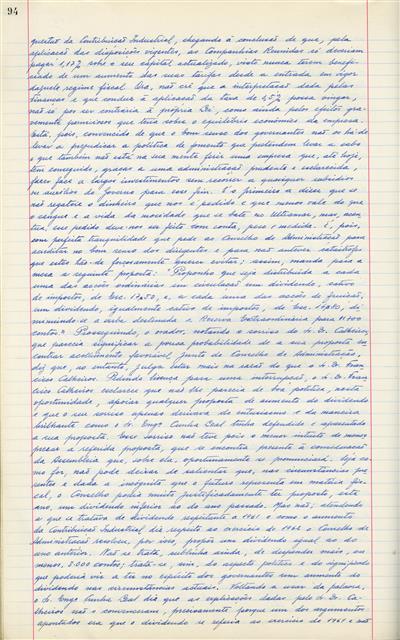 94
questão da Contribuição Industrial, chegando à conclusão de que, pela
aplicação das disposições vigentes, as Companhias Reunidas só deveriam
pagar 1,17% sobre o seu capital actualizado, visto nunca terem benefi-
ciado de um aumento das suas tarifas desde a entrada em vigor
daquele regime fiscal. Ora, não crê que a interpretação dada pelas
Finanças e que conduz à aplicação da taxa de 15% possa vingar,
não só por ser contrária à própria Lei, como ainda pelos efeitos gra-
vemente perniciosos que teria sobre o equilíbrio económico da empresa.
Está, pois, convencido de que o bom senso dos governantes não os há-de
levar a prejudicar a política de fomento que pretendem levar a cabo
e que também não está na sua mente ferir uma empresa que, até hoje,
tem conseguido, graças a uma administração prudente e esclarecida,
fazer face a largos investimentos sem recorrer a quaisquer subsídios
ou auxílios do Governo para esse fim. É o primeiro a dizer que se
não regateie o dinheiro que nos é pedido e que menos vale do que
o sangue e a vida da mocidade que se bate no Ultramar, mas, acen-
tua, esse pedido deve-nos ser feito com conta, peso e medida. É, pois,
com perfeita tranquilidade que pede ao Conselho de Administração para
acreditar no bom senso dos dirigentes e para não antever catástrofes
que estes hão-de forçosamente querer evitar; assim, manda para a
mesa a seguinte proposta: "Proponho que seja distribuído a cada
uma das acções ordinárias em circulação um dividendo, cativo
de impostos, de Esc. e, a cada uma das acções de fruição,
um dividendo, igualmente cativo de impostos, de Esc. di-
minuindo-se a verba destinada a Reserva Extraordinária para
contos." Prosseguindo, o orador, notando o sorriso do Sr. D. Calheiros,
que parecia significar a pouca probabilidade de a sua proposta en-
contrar acolhimento favorável junto do Conselho de Administração,
diz que, no entanto, julga estar mais na razão do que o Sr. D. Fran-
cisco Calheiros. Pedindo licença para uma interrupção, o Sr. D. Fran-
cisco Calheiros esclarece que não lhe parecia de boa política, nesta
oportunidade, apoiar qualquer proposta de aumento do dividendo
e que o seu sorriso apenas derivava do entusiasmo e da maneira
brilhante como o Sr. Engº Cunha Leal tinha defendido e apresentado
a sua proposta. Esse sorriso não teve pois o menor intuito de menos-
prezar a referida proposta, que se encontra presente à consideração
da Assembleia que, sobre ela, oportunamente se pronunciará. Seja co-
mo for, não pode deixar de salientar que, nas circunstâncias pre-
sentes e dada a incógnita que o futuro representa em matéria fis-
cal, o Conselho podia muito justificadamente ter proposto, este
ano, um dividendo inferior ao do ano passado. Mas não; atendendo
a que se tratava do dividendo respeitante a 1961 e como o aumento
da Contribuição Industrial diz respeito ao exercício de 1962, o Conselho de
Administração resolveu, por isso, propor um dividendo igual ao do
ano anterior. Não se trata, sublinha ainda, de despender mais, ou
menos, 3.000 contos; trata-se, sim, do aspecto político e do significado
que poderia vir a ter no espírito dos governantes um aumento do
dividendo nas circunstâncias actuais. Voltando a usar da palavra,
o Sr. Engº Cunha Leal diz que as explicações dadas pelo Sr. D. Ca-
lheiros não o convenceram, precisamente porque um dos argumentos
apontados era que o dividendo se referia ao exercício de 1961 e não